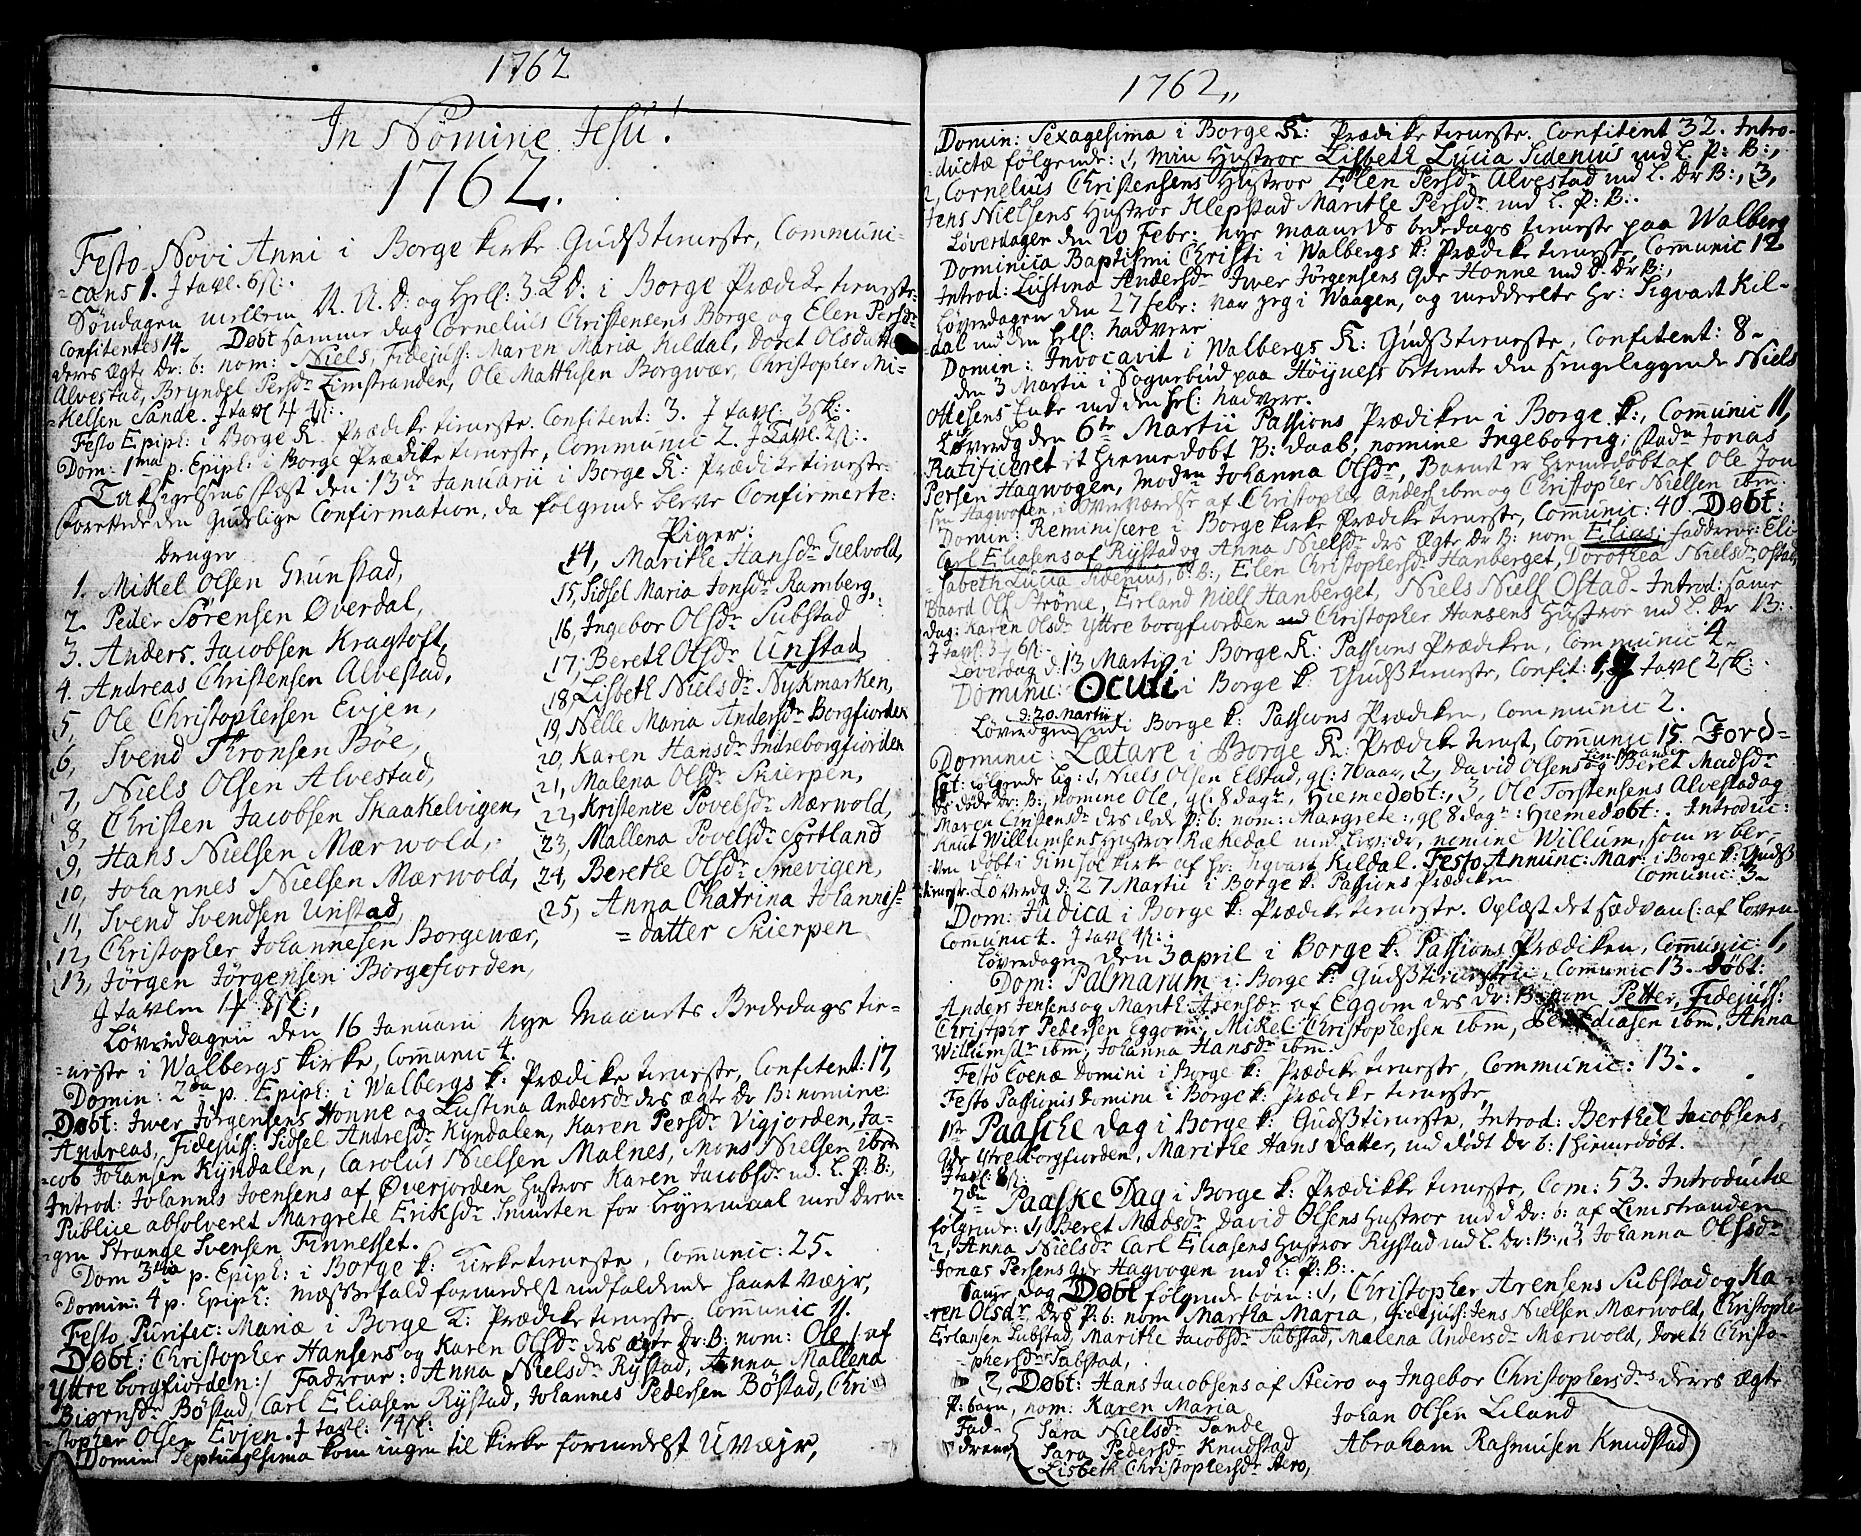 1762
In Nomine Jesu!
1762.
Festo Novi Anni i Borge kirke Gudstieneste, Communi-
=cans 1. J tavl. 6 sk:.
Søndagen mellem N. A. D: og Hell: 3. K D: i Borge Prædike tieneste.
Confitentes 14. Døbt samme dag Cornelius Christensens Borge og Elen Persdr
deres ægte Dr: b: nom: Niels, Fidejuss: Maren Maria Kildal, Doret Olsdatter
Alvestad, Bryndel Persdr Limstranden, Ole Mathisen Borgwær, Christopher Mi-
=kelsen Sande. J tavl 4 sk:.
Festo Epiph: i Borge K. Prædike tieneste. Confitent: 3. J tavl: 3 sk:.
Dom: 1ma p. Epiph: i Borge Prædike tieneste, Communic 2. J Tavl. 2 sk:.
Taksigelsens Fæst den 13de Januarii i Borge K: Prædike tieneste.
Forrettede den Gudelige Confirmation, da følgende bleve Confirmerte:
Drenger
1. Mikel Olsen Grunstad,
2. Peder Sørensen Øverdal,
3. Anders Jacobsen Kragtoft,
4. Andreas Christensen Alvestad,
5, Ole Christophersen Evjen,
6, Svend Thronsen Bøe,
7, Niels Olsen Alvestad,
8, Christen Jacobsen Skaakelvigen,
9, Hans Nielsen Mærwold,
10, Johannes Nielsen Mærwold,
11, Svend Svendsen Unstad,
12, Christopher Johannesen Borgewær,
13, Jørgen Jørgensen Borgefiorden,
Piger:
14, Marithe Hansdr Gielvold,
15, Sidsel Maria Jonsdr Ramberg,
16, Ingebor Olsdr Substad
17, Bereth Olsdr Unstad,
18, Lisbeth Nielsdr Nykmarken,
19, Nelle Maria Andersdr Borgfiorden
20, Karen Hansdr Indreborgfiorden
21, Malena Olsdr Skierpen,
22, Kristence Povelsdr Mærwold,
23, Mallena Povelsdr Sortland
24, Berethe Olsdr Smevigen,
25, Anna Chatrina Johannis-
=datter Skierpen
J tavlen 1 f 8 sk:,
Løverdagen den 16 Januarii Nye Maanets Bededags tie-
=neste i Walbergs kirke, Communic 4.
Domin: 2da p. Epiph: i Walbergs k: Prædike tieneste, Confitent: 17,
Døbt: Iwer Jørgensens Honne og Lustina Andersdr des ægte Dr B: nomine
Andreas, Fidejuss: Sidsel Andresdr Kyndalen, Karen Persdr Vigjorden, Ja-
=cob Johansen Kyndalen, Carolus Nielsen Malnes, Mons Nielsen ibm
Introd: Johannes Joensens af Øverjorden Hustroe Karen Jacobsdr md. L. P: B:,
Publice absolveret Margrete Eriksdr Smorten for Leyermaal med Dren-
=gen Strange Svensen Finnesset.
Dom 3tia p. Epiph: i Borge k: Kirke tieneste, Communic: 25.
Domin: 4 p. Epiph: Mæssefald formedelst indfaldende haart Væjr,
Festo Purific: Mariæ i Borge K: Prædike tieneste, Communic 11.
Døbt: Christopher Hansens og Karen Olsdr des ægte Dr: B: nom: Ole /: af
Yttre borgfiorden:/ Fadrene: Anna Nielsdr Rystad, Anna Mallena
Biørnsdr Bøstad, Carl Eliasen Rystad, Johannes Pedersen Bøstad, Chri-
=stopher Olsen Evjen. J tavl: 14 sk:
Domin Septuagesima kom ingen til kirke formedelst Uvæjr,
1762,,
Domin: Sexagesima i Borge K: Prædike tieneste. Confitent 32. Intro-
ductæ følgende: 1, min Hustroe Lisbeth Lucia Sidenius md L. P: B:,
2, Cornelius Christensens Hustroe Elen Persdr Alvestad md L. Dr B:, 3,
Jens Nielsens Hustroe Klepstad Marithe Persdr md L. P: B:.
Løverdagen den 20 Febr: Nye maaneds bededags tieneste paa Walberg
Dominica Baptismi Christi i Walbergs k: Prædike tieneste, Comunic 12
Introd: Lustina Andersdr Iwer Jørgensens Qde Honne md D. Dr B:,
Løverdagen den 27 febr: var jeg i Waagen, og meddeelte Hr: Sigvart Kil-
dal md den hell: nadvere
Domin: Invocavit i Walbergs K: Gudstieneste, Confitent: 8.
den 3 Martii i Sognebud paa Høynes betiente den sengeliggende Niels
Ottesens Enke md den hel: nadvere.
Løverdg den 6te Martii Passions Prædiken i Borge k:, Communic 11,
Ratificeret et Hiemedøbt B: daab, nomine Ingeborrig, fadn Jonas
Persen Hagwogen, modrn Johanna Olsdr, Barnet er Hiemedøbt af Ole Jon-
sen Hagwogen, i overværelse af Christopher Anders ibm og Christopher Nielsen ibm.
Domin: Reminiscere i Borge kirke Prædike tieneste, Communic: 40. Døbt:
Carl Eliasens af Rystad og Anna Nielsdr des ægte Dr B: nom Elias; faddere: Eli-
=sabeth Lucia Sidenius, Elen Christophersdr Hanberget, Dorothea Nielsdr Ostad,
Baard Ols Strøme, Erland Niels Hanberget, Niels Niels Ostad. Introd: same
dag: Karen Olsdr Yttre borgfiorden Christopher Hansens Hustroe md L. Dr B:.
J tavl: 6 sk.
Løverdag d: 13 Martii i Borge K: Passions Prædiken, Communic 4.
Dominic: Oculi i Borge k: Gudstieneste, Confit: J tavl 2 sk:.
Løverdgen d: 20. Martii i Borge k: Passions Prædiken, Communic 2.
Dominic: Lætare i Borge K: Prædike tienst, Communic 15. Jord-
fæst: følgende lig: 1, Niels Olsen Elstad, gl: 70 aar, 2, David Olsens og Beret Madsdr Limstranden
ds døde Dr: B:, nomine Ole, gl: 8 dagr, Hiemedøbt:, 3, Ole Torstensens Alvestad og
Maren Christensdr des døde P: b: nom: Margrete:, gl 8 dagr: Hiemedøbt:. Introduc:
Knut Willumsens Hustroe Rækedal md lev: dr, nomine Willum, som er ble-
ven døbt i Gimsøe kirke af Hr: Sigvart Kildal. Festo Annunc: Mar: i Borge k: Guds
tieneste. Løverdg d: 27 Martii i Borge k: Passions Prædiken Comunic: 3.
Dom: Judica i Borge k: Prædike tieneste. Oplæst det sædvanl: af Loven.
Comunic 4. J tavl 1 sk:.
Løverdagen den 3 april i Borge k: Passions Prædiken, Communic: 1,
Dom: Palmarum i Borge k: Gudstieneste, Communic 13. Døbt:
Anders Jensens og Marith: Arensdr af Eggom des Dr: B: nom Petter, Fidejuss:
Christpher Pedersen Eggom, Mikel Christophersen ibm, ibm, Anna
Willumsdr ibm, Johanna Hansdr ibm.
Festo Coenæ Domini i Borge k: Prædike tieneste, Communic: 13:.
Festo Passionis Domini i Borge k: Prædike tieneste,
1ste Paasche Dag i Borge k: Gudstieneste, Introd: Berthel Jacobsens
Qde Ytreborgfiorden, Marithe Hans Datter, md dødt Dr b: 1 hiemedøbt.
J tavl: 8 sk:
2den Paaske Dag i Borge k: Prædikke tieneste, Com: 53. Introductæ
følgende: 1, Beret Madsdr David Olsens Hustroe md d Dr: b: af Limstranden
2, Anna Nielsdr Carl Eliasens Hustroe Rystad md L. Dr: B:, 3, Johanna Olsdr
Jonas Persens Qde Hagvogen md L: P: B:.
Same dag Døbt følgende børn: 1, Christopher Arensens Substad og Ka-
=ren Olsdr des P: b: nom Martha Maria, fidejuss: Jens Nielsen Mærwold, Christopher
Erlansen Substad, Marithe Jacobsdr Substad, Malena Andersdr Mærwold, Doreth Christo-
=phersdr Substad,
2, Døbt: Hans Jacobsens af Steiro og Ingebor Christophersdrs deres ægte
P: barn, nom: Karen Maria
Fad-
drene
Sara Nielsdr Sande
Sara Pedersdr Knudstad
Lisbeth Christophersdr Stero,
Johan Olsen Liland
Abraham Rasmusen Knudstad